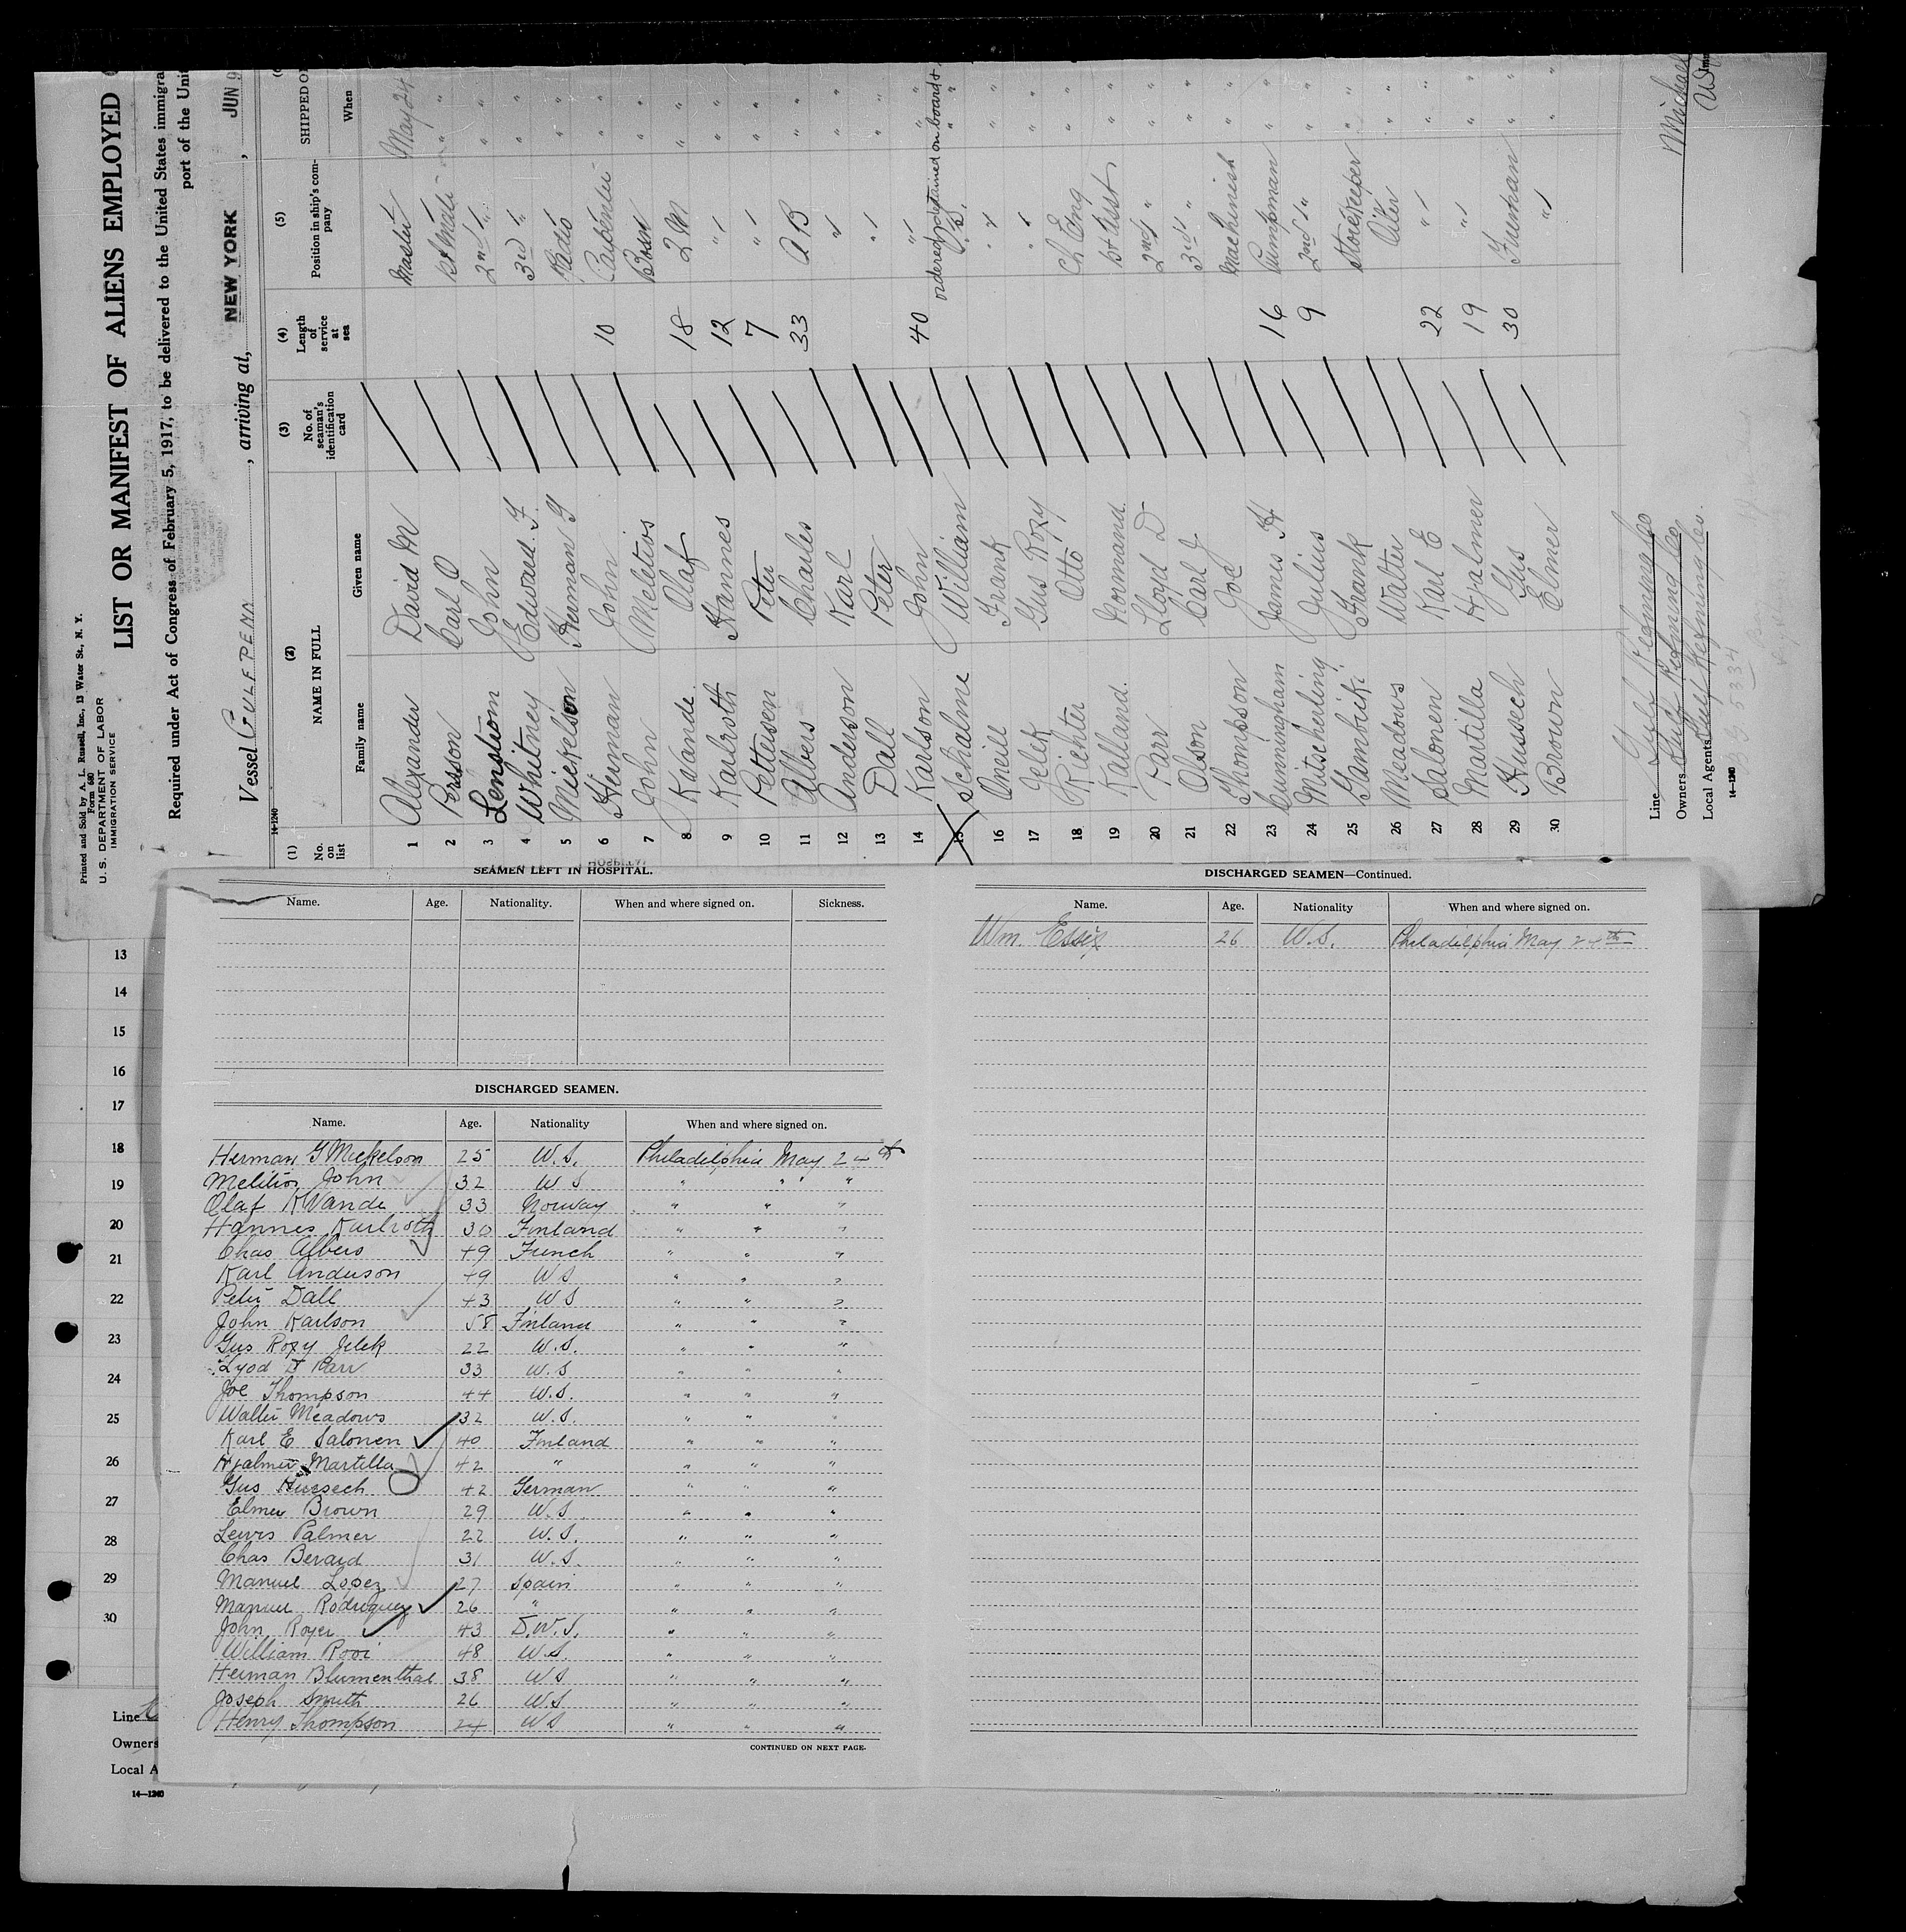 Printed and Sold by A. L. Russell, Inc., 13 Water St., N. Y.
Form 680
U. S. DEPARTMENT OF LABOR
IMMIGRATION SERVICE
LIST OR MANIFEST OF ALIENS EMPLOYED
Required under Act of Congress of February 5, 1917, to be delivered to the United States immigra
port of the Unit
Vessel GULFPENN, arriving at, NEW YORK, JUN 9
14-1240
(1) (2) (3) (4) (5)
No. on list NAME IN FULL No. of seaman's identification card Length of service at sea Position in ship's company SHIPPED OR
Family name Given name When
1 Alexander David M Master May 24
2 Persson Carl O 1st Mate " "
3 Lenstrom John 2nd " " "
4 Whitney Edward F. 3rd " " "
5 Mickelson Herman G Radio " "
6 Heiman John 10 Carpenter " "
7 John Meletios Bosn " "
8 Kvande Olaf 18 2 M " "
9 Karlroth Hannes 12 " " "
10 Pettersen Peter 7 " " "
11 Albers Charles 33 A B " "
12 Anderson Karl " " "
13 Dall Peter " " "
14 Karlson John 40 " " "
ordered detained on board
15 Schalme William O.S. " "
16 Oneill Frank " " "
17 Jelek Gus Rozy " " "
18 Richter Otto Ch Eng " "
19 Kalland. Normand. 1st Asst " "
20 Parr Lloyd D 2nd " " "
21 Olson Carl J 3rd " " "
22 Thompson Joe Machinist " "
23 Cunningham James H 16 Pumpman " "
24 Mitscherling Julius 9 2nd " " "
25 Gambicki Frank Storekeeper " "
26 Meadows Walter Oiler " "
27 Salonen Karl E 22 " " "
28 Martilla Hjalmer 19 " " "
29 Hussech Gus 30 Fireman " "
30 Brown Elmer " " "
Line Gulf Refining Co
Owners Gulf Refining Co
Local Agents Gulf Refining Co.
14-1240
5334
Michael
SEAMEN LEFT IN HOSPITAL.
Name. Age. Nationality. When and where signed on. Sickness.
DISCHARGED SEAMEN.
Name. Age. Nationality When and where signed on.
Herman G Mickelson 25 U.S. Philadelphia May 24th
Melitios John 32 U S " " "
Olaf KVande 33 Norway " " "
Hannes Karlroth 30 Finland " " "
Chas Albers 49 French " " "
Karl Anderson 49 U S " " "
Peter Dall 43 U S " " "
John Karlson 58 Finland " " "
Gus Rozy Jelek 22 U.S. " " "
Lyod D Parr 33 U.S " " "
Joe Thompson 44 U.S. " " "
Walter Meadows 32 U.S. " " "
Karl E Salonen 40 Finland " " "
Hjalmer Martilla 42 " " " "
Gus Hussech 42 German " " "
Elmer Brown 29 U.S " " "
Lewis Palmer 22 U.S. " " "
Chas Berard 31 U.S. " " "
Manuel Lopez 27 Spain " " "
Manuel Rodriquez 26 " " " "
John Royer 43 D.W.I. " " "
William Rooi 48 U.S. " " "
Herman Blumenthal 38 U S " " "
Joseph Smith 26 U.S " " "
Henry Thompson 24 U S " " "
CONTINUED ON NEXT PAGE.
DISCHARGED SEAMEN—Continued.
Name. Age. Nationality When and where signed on.
Wm. Essig 26 U.S. Philadelphia May 24th
13
14
15
16
17
18
19
20
21
22
23
24
25
26
27
28
29
30
Line
Owners
Local A
14—1240